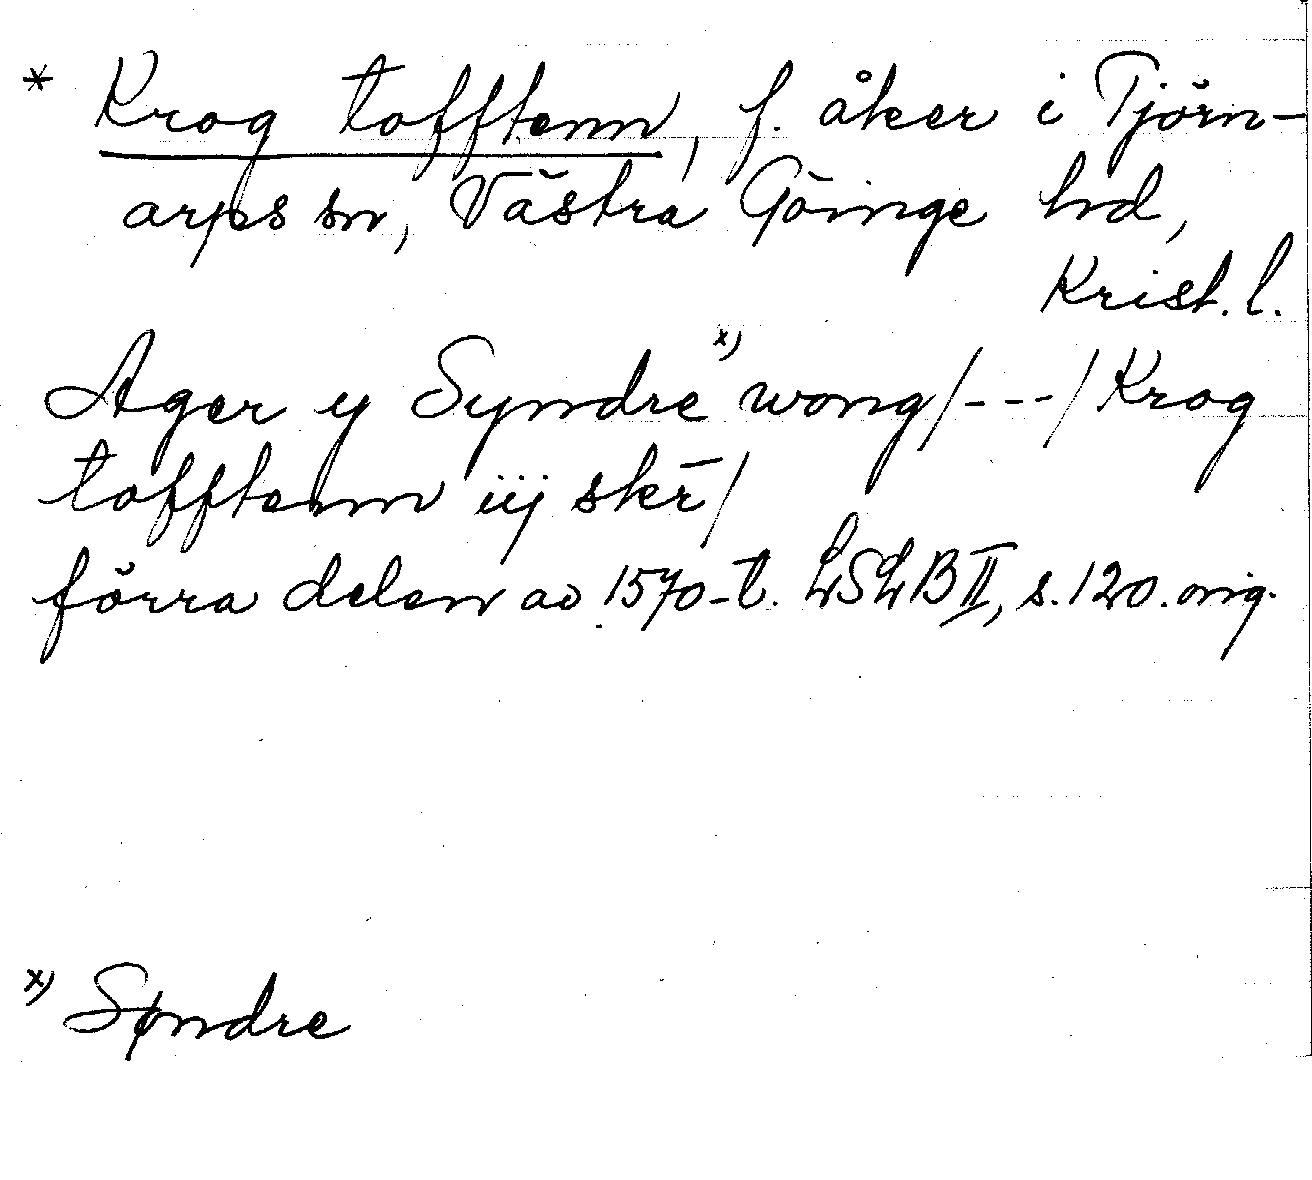 * Krog tofftenn, f. åker i Tjörn-
arps sn, Västra Göinge hd,
Krist. l.
Ager y Syndre x) wong/---/Krog
tofftenn iij skr̄/
förra delen av 1570-t. LSLB II, s. 120. orig.
x) Søndre